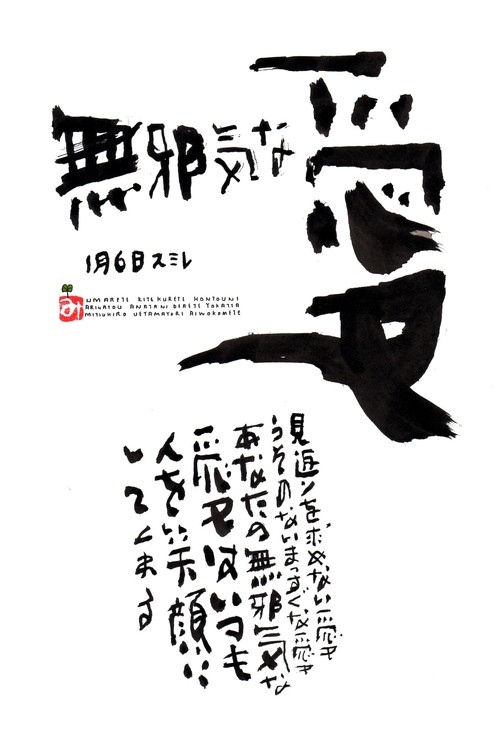 無邪気な
愛
1月6日スミレ
み
UMARETE KITEKURETE HONTOUNI
ARIGATOU ANATANI DEAETE YOKATTA
MITSUHIRO UETAMATORI AIWOKOMETE
見返りを求めない愛
うそのないまっすぐな愛
あなたの無邪気な
愛はいつも
人を笑顔に
してくます